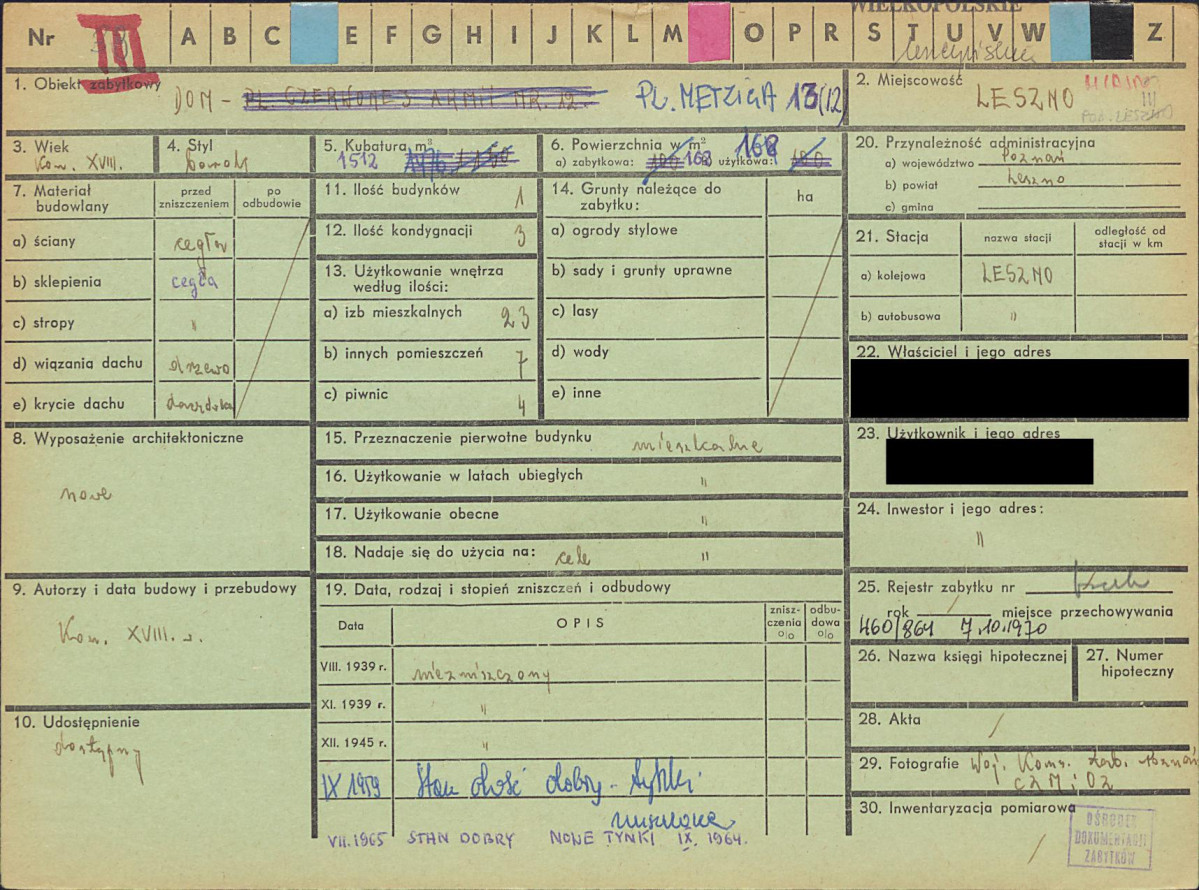 WIELKOPOLSKIE
Nr III A B C E F G H I J K L M O P R S T U V W Z
1. Obiekt zabytkowy
DOM - PL. CZERWONEJ ARMII NR. 12. PL. METZIGA 13 (12)
2. Miejscowość
LESZNO
3. Wiek
Kon. XVIII.
4. Styl
barok
5. Kubatura m³
1512
6. Powierzchnia w m²
a) zabytkowa: 168 użytkowa: 168
20. Przynależność administracyjna
a) województwo Poznań
b) powiat Leszno
c) gmina
7. Materiał budowlany
przed zniszczeniem
po odbudowie
a) ściany cegła
b) sklepienia cegła
c) stropy "
d) wiązania dachu drzewo
e) krycie dachu dachówka
11. Ilość budynków 1
12. Ilość kondygnacji 3
13. Użytkowanie wnętrza według ilości:
a) izb mieszkalnych 23
b) innych pomieszczeń 7
c) piwnic 4
14. Grunty należące do zabytku:
ha
a) ogrody stylowe
b) sady i grunty uprawne
c) lasy
d) wody
e) inne
21. Stacja
nazwa stacji
odległość od stacji w km
a) kolejowa LESZNO
b) autobusowa "
22. Właściciel i jego adres
23. Użytkownik i jego adres
8. Wyposażenie architektoniczne
nowe
15. Przeznaczenie pierwotne budynku mieszkalne
16. Użytkowanie w latach ubiegłych "
17. Użytkowanie obecne "
18. Nadaje się do użycia na: cele "
24. Inwestor i jego adres:
"
9. Autorzy i data budowy i przebudowy
Kon. XVIII. w.
19. Data, rodzaj i stopień zniszczeń i odbudowy
Data
OPIS
zniszczenia %
odbudowa %
VIII. 1939 r. niezniszczony
XI. 1939 r. "
XII. 1945 r. "
IX 1959 Stan dość dobry - tynki
VII.1965 STAN DOBRY NOWE TYNKI IX. 1964.
25. Rejestr zabytku nr
rok / miejsce przechowywania
460/861 7.10.1970
26. Nazwa księgi hipotecznej
27. Numer hipoteczny
10. Udostępnienie
dostępny
28. Akta /
29. Fotografie Woj. Kons. Zab. Poznań
CZM i OZ
30. Inwentaryzacja pomiarowa
/
OŚRODEK
DOKUMENTACJI
ZABYTKÓW